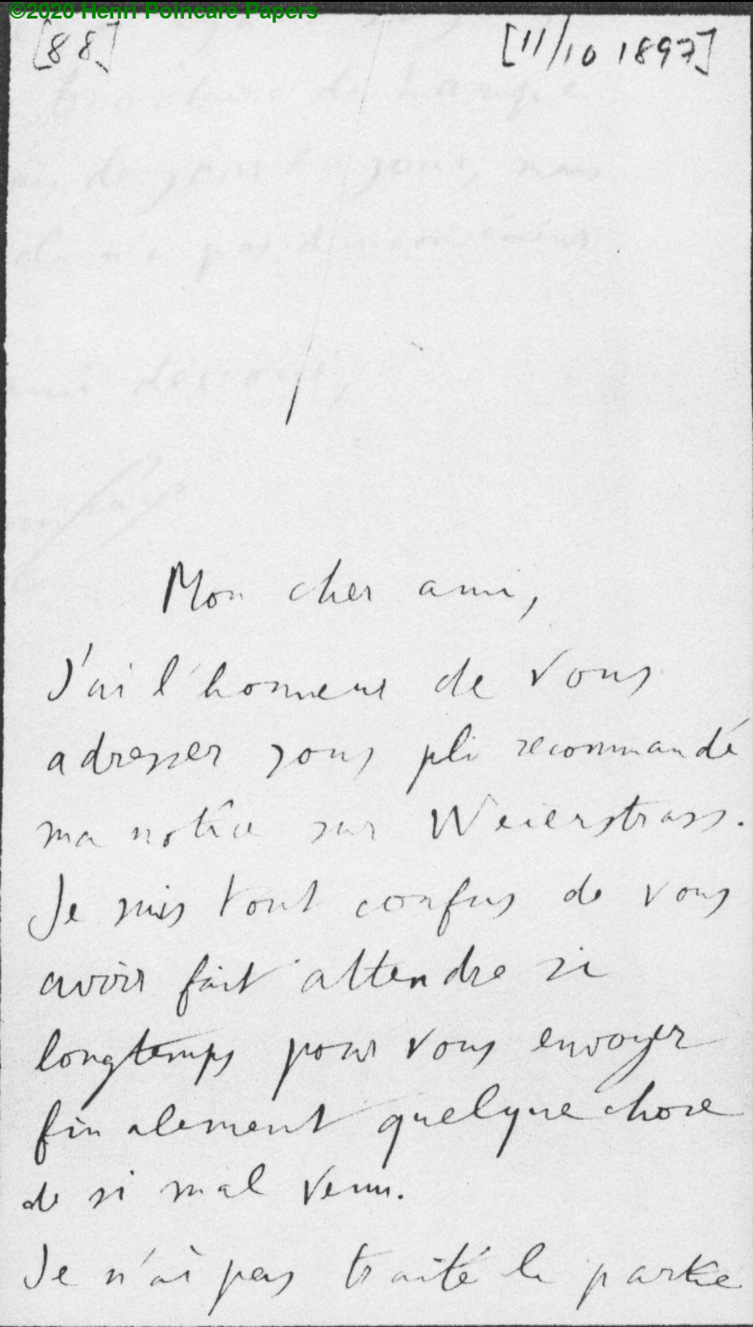 ©2020 Henri Poincaré Papers
[88]
[11/10 1897]
Mon cher ami,
J'ai l'honneur de vous
adresser sous pli recommandé
ma notice sur Weierstrass.
Je suis tout confus de vous
avoir fait attendre si
longtemps pour vous envoyer
finalement quelque chose
de si mal venu.
Je n'ai pas traité la partie